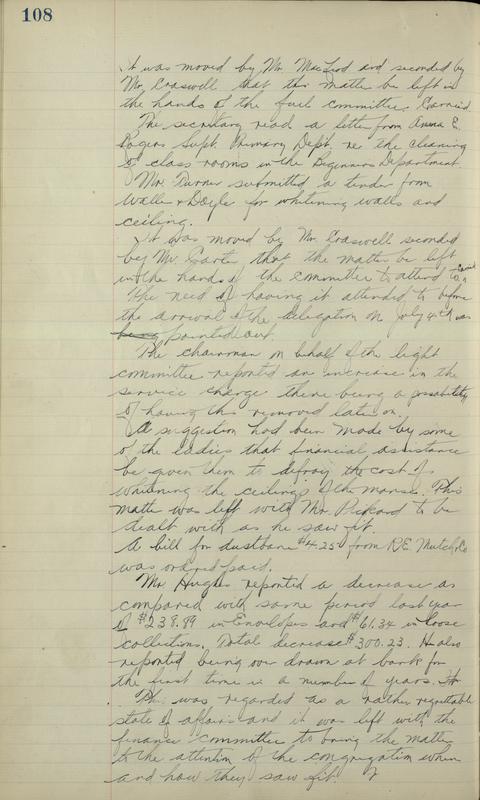 108
It was moved by Mr. MacLeod and seconded by
Mr. Craswell that this matter be left in
the hands of the fuel committee. Carried
The secretary read a letter from Anna E.
Rogers Supt. Primary Dept. re the cleaning
of class rooms in the Beginners Department
Mr. Turner submitted a tender from
Waller & Doyle for whitening walls and
ceiling.
It was moved by Mr. Craswell seconded
by Mr. that the matter be left
in the hands of the committee to attend to. Carried
The need of having it attended to before
the arrival of the delegation on July 4th was
being pointed out.
The chairman on behalf of the light
committee reported an increase in the
service charge there being a possibility
of having this removed later on.
A suggestion had been made by some
of the ladies that financial assistance
be given them to defray the cost of
whitening the ceilings of the manse. This
matter was left with Mr. Pickard to be
dealt with as he saw fit.
A bill for dustbane $4.25 from R.E. Mutch & Co
was ordered paid.
Mr Hughes reported a decrease as
compared with same period last year
of $238.89 in Envelopes and $61.34 in loose
collections. Total decrease $300.23. He also
reported being over drawn at bank for
the first time in a number of years.
This was regarded as a rather regrettable
state of affairs and it was left with the
finance committee to bring the matter
to the attention of the congregation when
and how they saw fit.